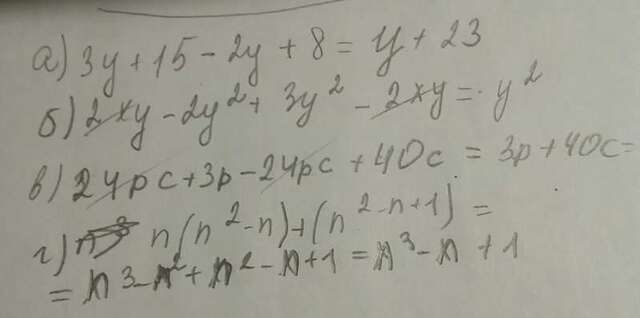 а) 3y + 15 - 2y + 8 = y + 23
б) 2xy - 2y² + 3y² - 2xy = y²
в) 24pc + 3p - 24pc + 40c = 3p + 40c =
г) n(n² - n) + (n² - n + 1) =
= n³ - n² + n² - n + 1 = n³ - n + 1